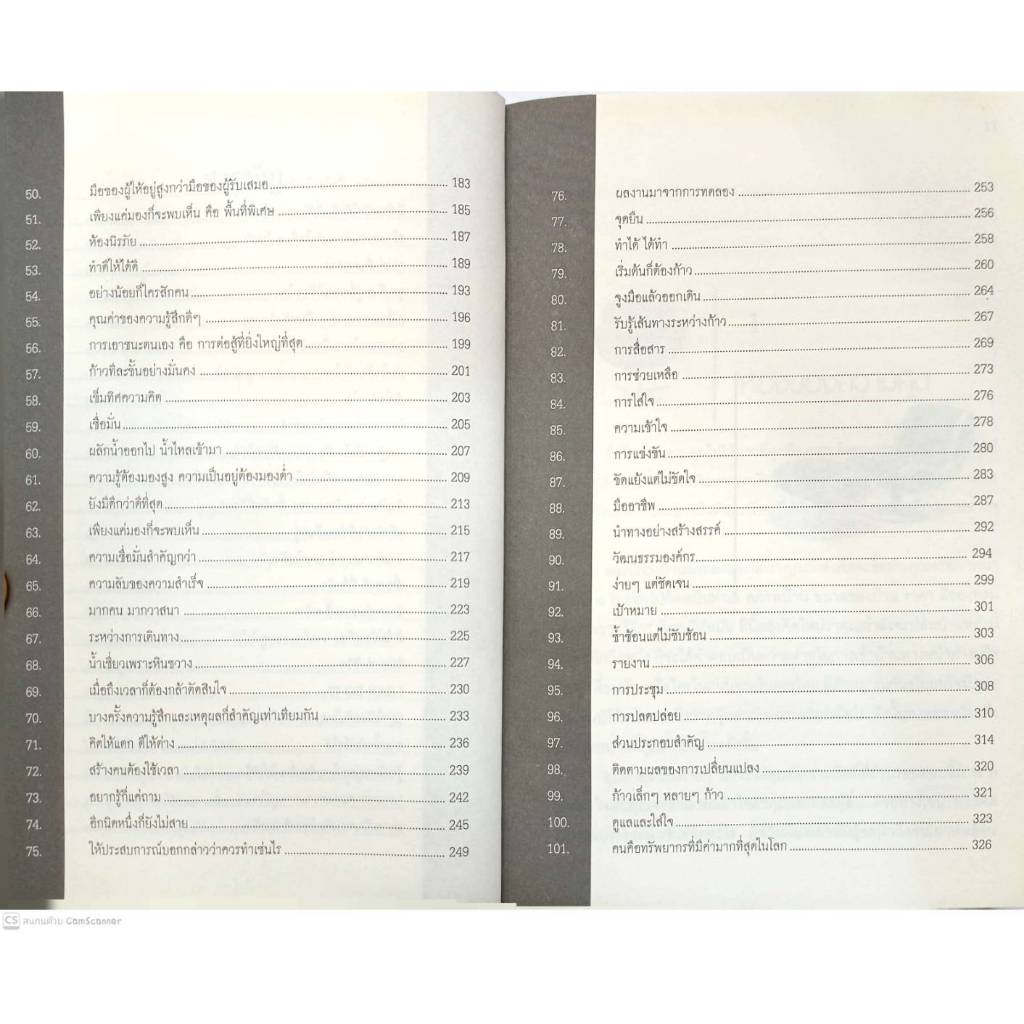 50. มือของผู้ให้อยู่สูงกว่ามือของผู้รับเสมอ 183
51. เพียงแค่มองก็จะพบเห็น คือ พื้นที่พิเศษ 185
52. ห้องนิรภัย 187
53. ทำดีให้ได้ดี 189
54. อย่างน้อยก็ใครสักคน 193
55. คุณค่าของความรู้สึกดีๆ 196
56. การเอาชนะตนเอง คือ การต่อสู้ที่ยิ่งใหญ่ที่สุด 199
57. ก้าวทีละขั้นอย่างมั่นคง 201
58. เข็มทิศความคิด 203
59. เชื่อมั่น 205
60. ผลักน้ำออกไป น้ำไหลเข้ามา 207
61. ความรู้ต้องมองสูง ความเป็นอยู่ต้องมองต่ำ 209
62. ยังมีดีกว่าดีที่สุด 213
63. เพียงแค่มองก็จะพบเห็น 215
64. ความเชื่อมั่นสำคัญกว่า 217
65. ความลับของความสำเร็จ 219
66. มากคน มากวาสนา 223
67. ระหว่างการเดินทาง 225
68. น้ำเชี่ยวเพราะหินขวาง 227
69. เมื่อถึงเวลาก็ต้องกล้าตัดสินใจ 230
70. บางครั้งความรู้สึกและเหตุผลก็สำคัญเท่าเทียมกัน 233
71. คิดให้แตก ดีให้ต่าง 236
72. สร้างคนต้องใช้เวลา 239
73. อยากรู้ก็แค่ถาม 242
74. อีกนิดหนึ่งก็ยังไม่สาย 245
75. ให้ประสบการณ์บอกกล่าวว่าควรทำเช่นไร 249
76. ผลงานมาจากการทดลอง 253
77. จุดยืน 256
78. ทำได้ ได้ทำ 258
79. เริ่มต้นก็ต้องก้าว 260
80. จูงมือแล้วออกเดิน 264
81. รับรู้เส้นทางระหว่างก้าว 267
82. การสื่อสาร 269
83. การช่วยเหลือ 273
84. การใส่ใจ 276
85. ความเข้าใจ 278
86. การแข่งขัน 280
87. ขัดแย้งแต่ไม่ขัดใจ 283
88. มืออาชีพ 287
89. นำทางอย่างสร้างสรรค์ 292
90. วัฒนธรรมองค์กร 294
91. ง่ายๆ แต่ชัดเจน 299
92. เป้าหมาย 301
93. ซ้ำซ้อนแต่ไม่ซับซ้อน 303
94. รายงาน 306
95. การประชุม 308
96. การปลดปล่อย 310
97. ส่วนประกอบสำคัญ 314
98. ติดตามผลของการเปลี่ยนแปลง 320
99. ก้าวเล็กๆ หลายๆ ก้าว 321
100. ดูแลและใส่ใจ 323
101. คนคือทรัพยากรที่มีค่ามากที่สุดในโลก 326
CS สแกนด้วย CamScanner